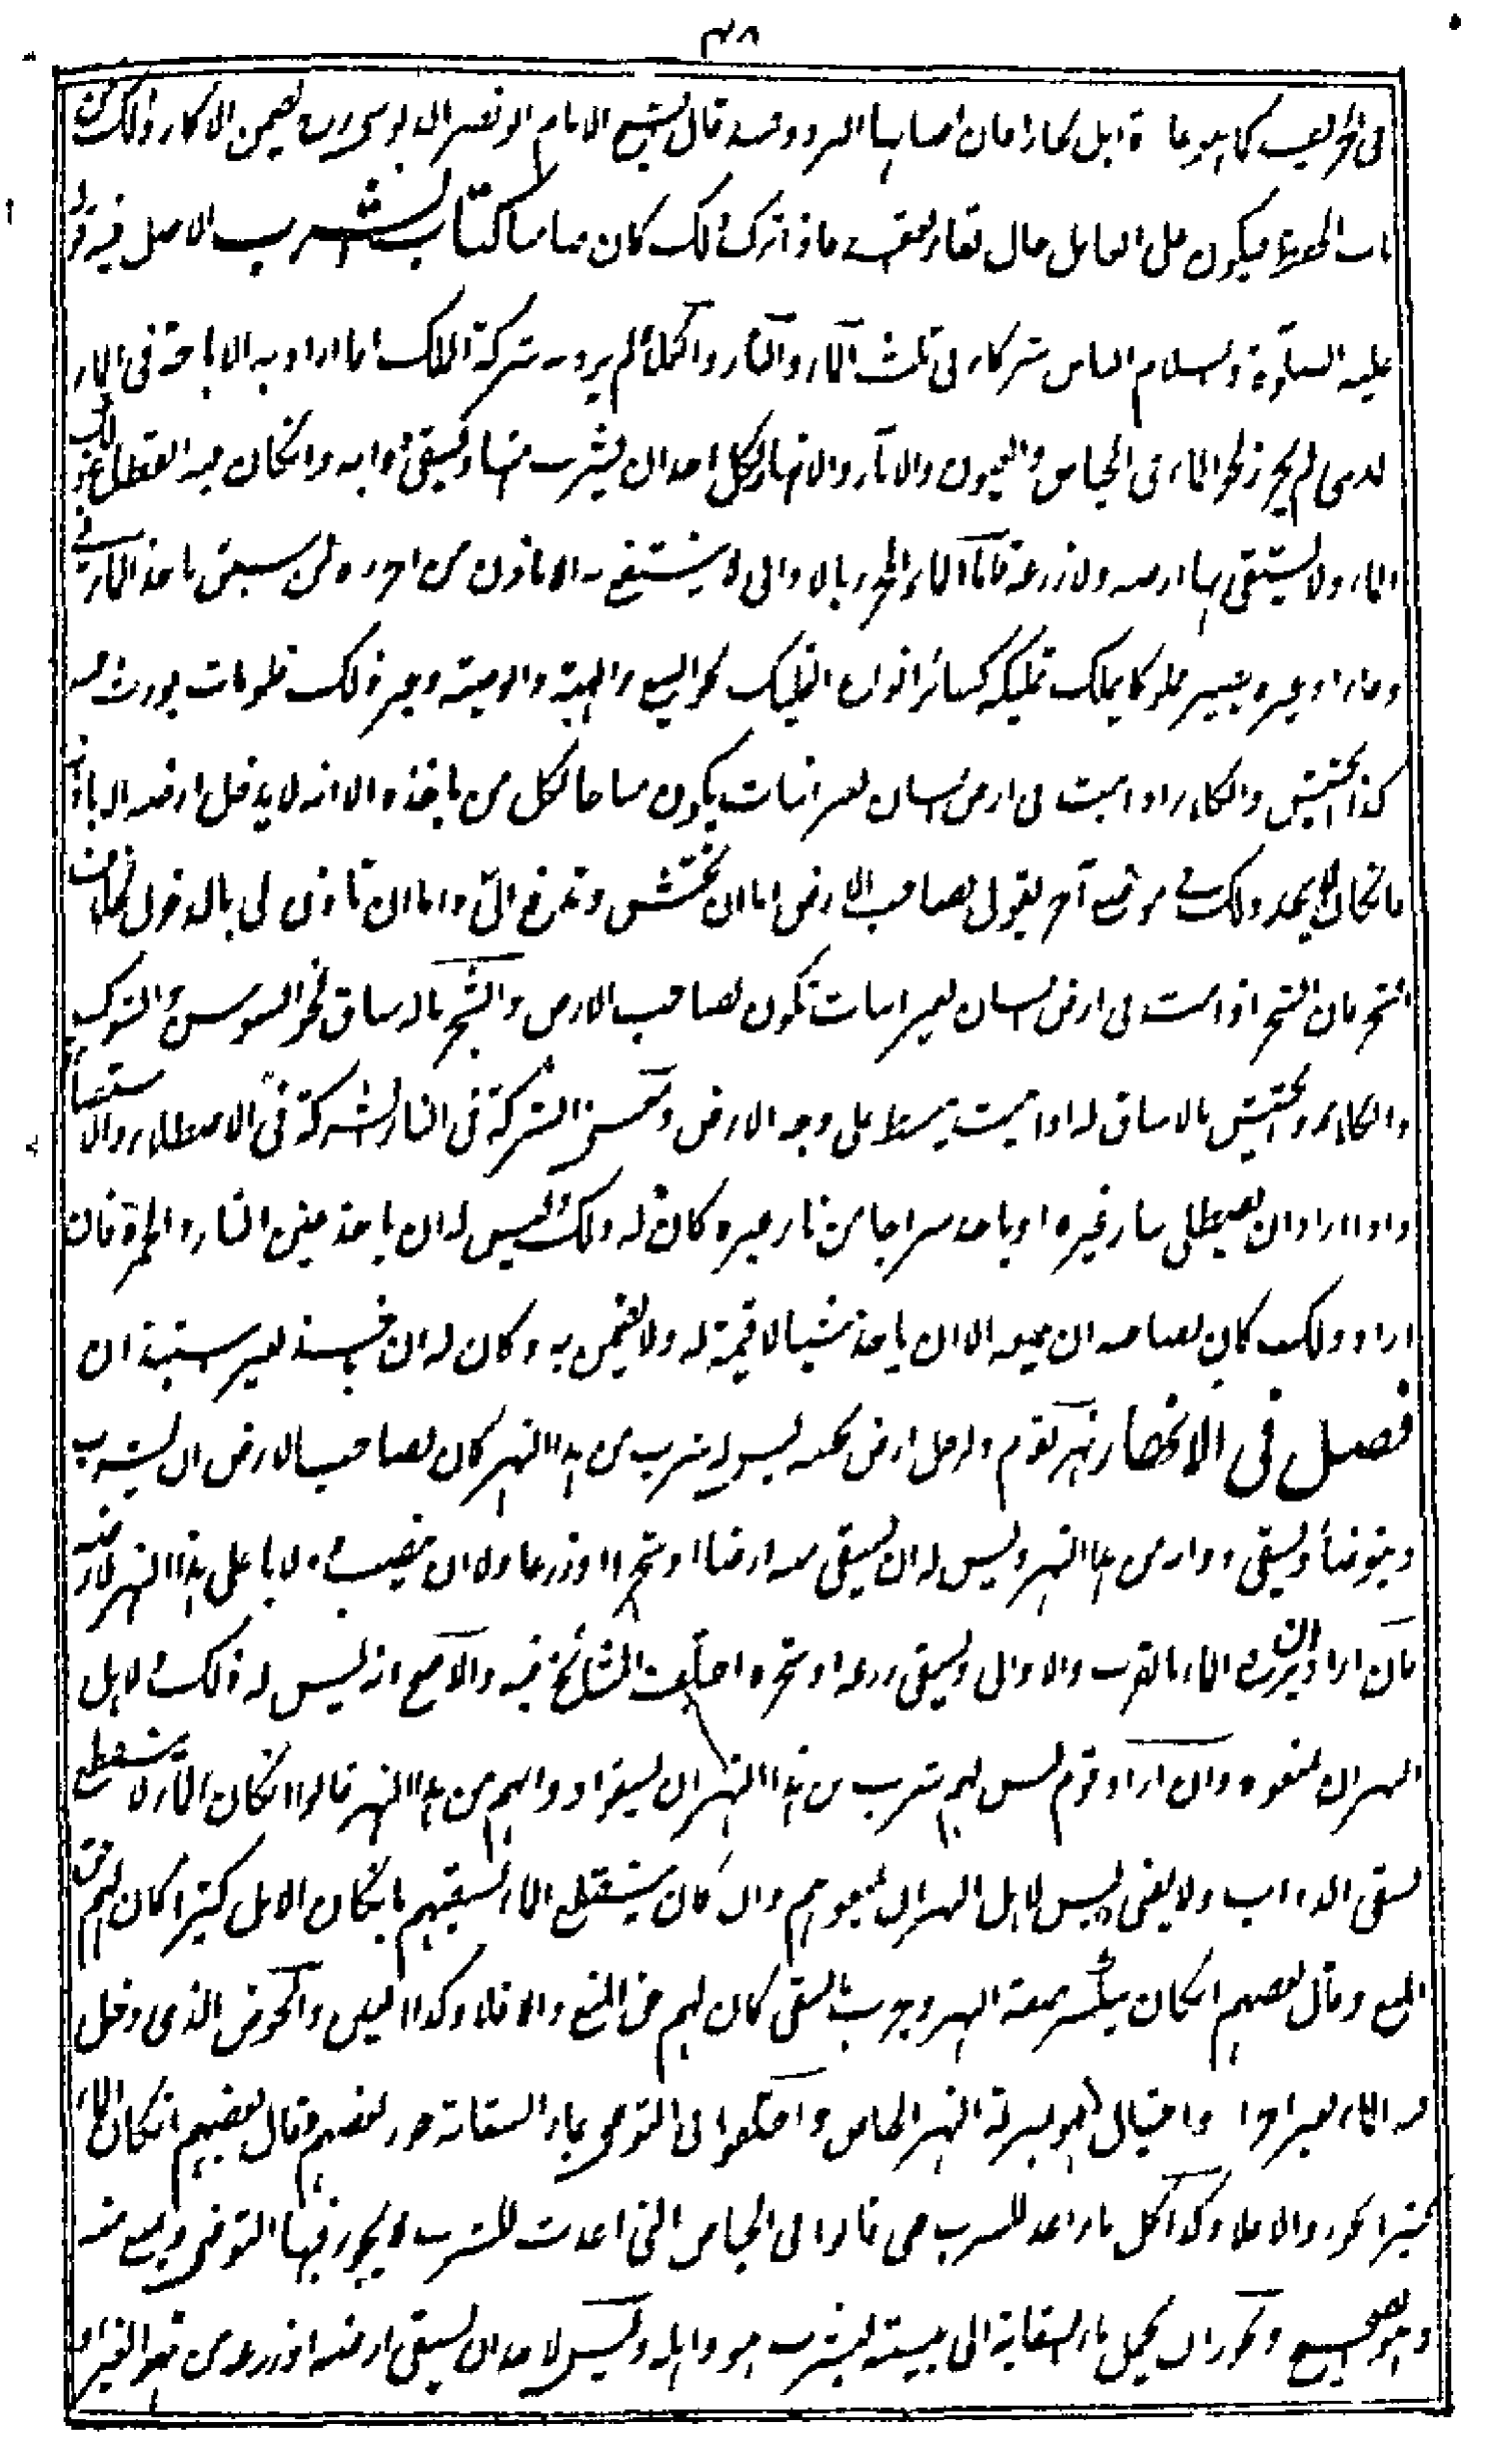 ٣٨
في الخريف كما هو عادة اهل بخارا فان اصابها البرد وفسد قال الشيخ الامام ابو نصر الدبوسي رح يضمن الاكار ذلك لان
باب الحفظ فيكون على العامل حال بقاء العقد فاذا ترك ذلك كان ضامنا كتاب الشرب الاصل فيه قوله
عليه الصلوة والسلام الناس شركاء في ثلث الماء والنار والكلأ لم يرد به شركة الملك انما اراد به الاباحة في الماء
الذي لم يحرز نحو الماء في الحياض والعيون والآبار والانهار لكل احد ان يشرب منها ويسقي دوابه وانكان فيه انقطاع
الماء ولا يستقي بها ارضه ولا زرعه فاما الماء المحرز بالاواني لا ينتفع به الا باذن من احرزه لمن سبق باخذ الماء في
وعاء او غيره يصير مملوكا يملك تمليكه كسائر انواع التمليك نحو البيع والهبة والوصية وغير ذلك فلو مات يورث عنه
كذا الحشيش والكلاء اذا نبت في ارض انسان بغير انبات يكون مباحا لكل من ياخذه الا انه لا يدخل ارضه الا باذنه
فانكان لا يجد ذلك في موضع آخر يقول لصاحب الارض اما ان تحتش وتدفع الي واما ان تاذن لي بالدخول بخلاف
الشجر فان الشجر اذا نبت في ارض انسان بغير انبات تكون لصاحب الارض والشجر ما له ساق نحو السوس والشوك
والكلاء والحشيش ما لا ساق له اذا نبت ينبسط على وجه الارض وتفسير الشركة في النار الشركة في الاصطلاء والاستضاءة
واذا اراد ان يصطلي بنار غيره او ياخذ سراجا من نار غيره كان له ذلك وليس له ان ياخذ عين النار والجمرة فان
اراد ذلك كان لصاحبه ان يمنعه الا ان ياخذ شيئا لا قيمة له ولا يضمن به وكان له ان ياخذ بغير استيذان
فصل في الانهار نهر لقوم ولرجل ارض بجنبه ليس له شرب من هذا النهر كان لصاحب الارض ان يشرب
ويتوضأ ويسقي دوابه من هذا النهر وليس له ان يسقي منه ارضا او شجرا او زرعا ولا ان ينصب دولابا على هذا النهر لارضه
فان اراد ان يرفع الماء بالقرب والاواني ويسقي زرعه او شجره اختلف المشائخ فيه والاصح انه ليس له ذلك ولاهل
النهر ان يمنعوه وان اراد قوم ليس لهم شرب من هذا النهر ان يسقوا دوابهم من هذا النهر قالوا انكان الماء لا ينقطع
بسقي الدواب ولا يفنى ليس لاهل النهر ان يمنعوهم وان كان ينقطع الماء بسقيهم بانكان الابل كثيرا كان لهم حق
المنع وقال بعضهم انكان ينكسر ضفة النهر ويخرب بالسقي كان لهم حق المنع والا فلا وكذا العين والحوض الذي دخل
فيه الماء بغير احراز واحتيال فهو بمنزلة النهر الخاص واختلفوا في التوضي بماء السقاية جوز بعضهم وقال بعضهم انكان الماء
كثيرا يجوز والا فلا وكذا كل ماء اعد للشرب حتى قالوا في الحياض التي اعدت للشرب لا يجوز فيها التوضي ويمنع منه
وهو الصحيح ويجوز ان يحمل ماء السقاية الى بيته ليشرب هو واهله وليس لاحد ان يسقي ارضه او زرعه من نهر الغير او